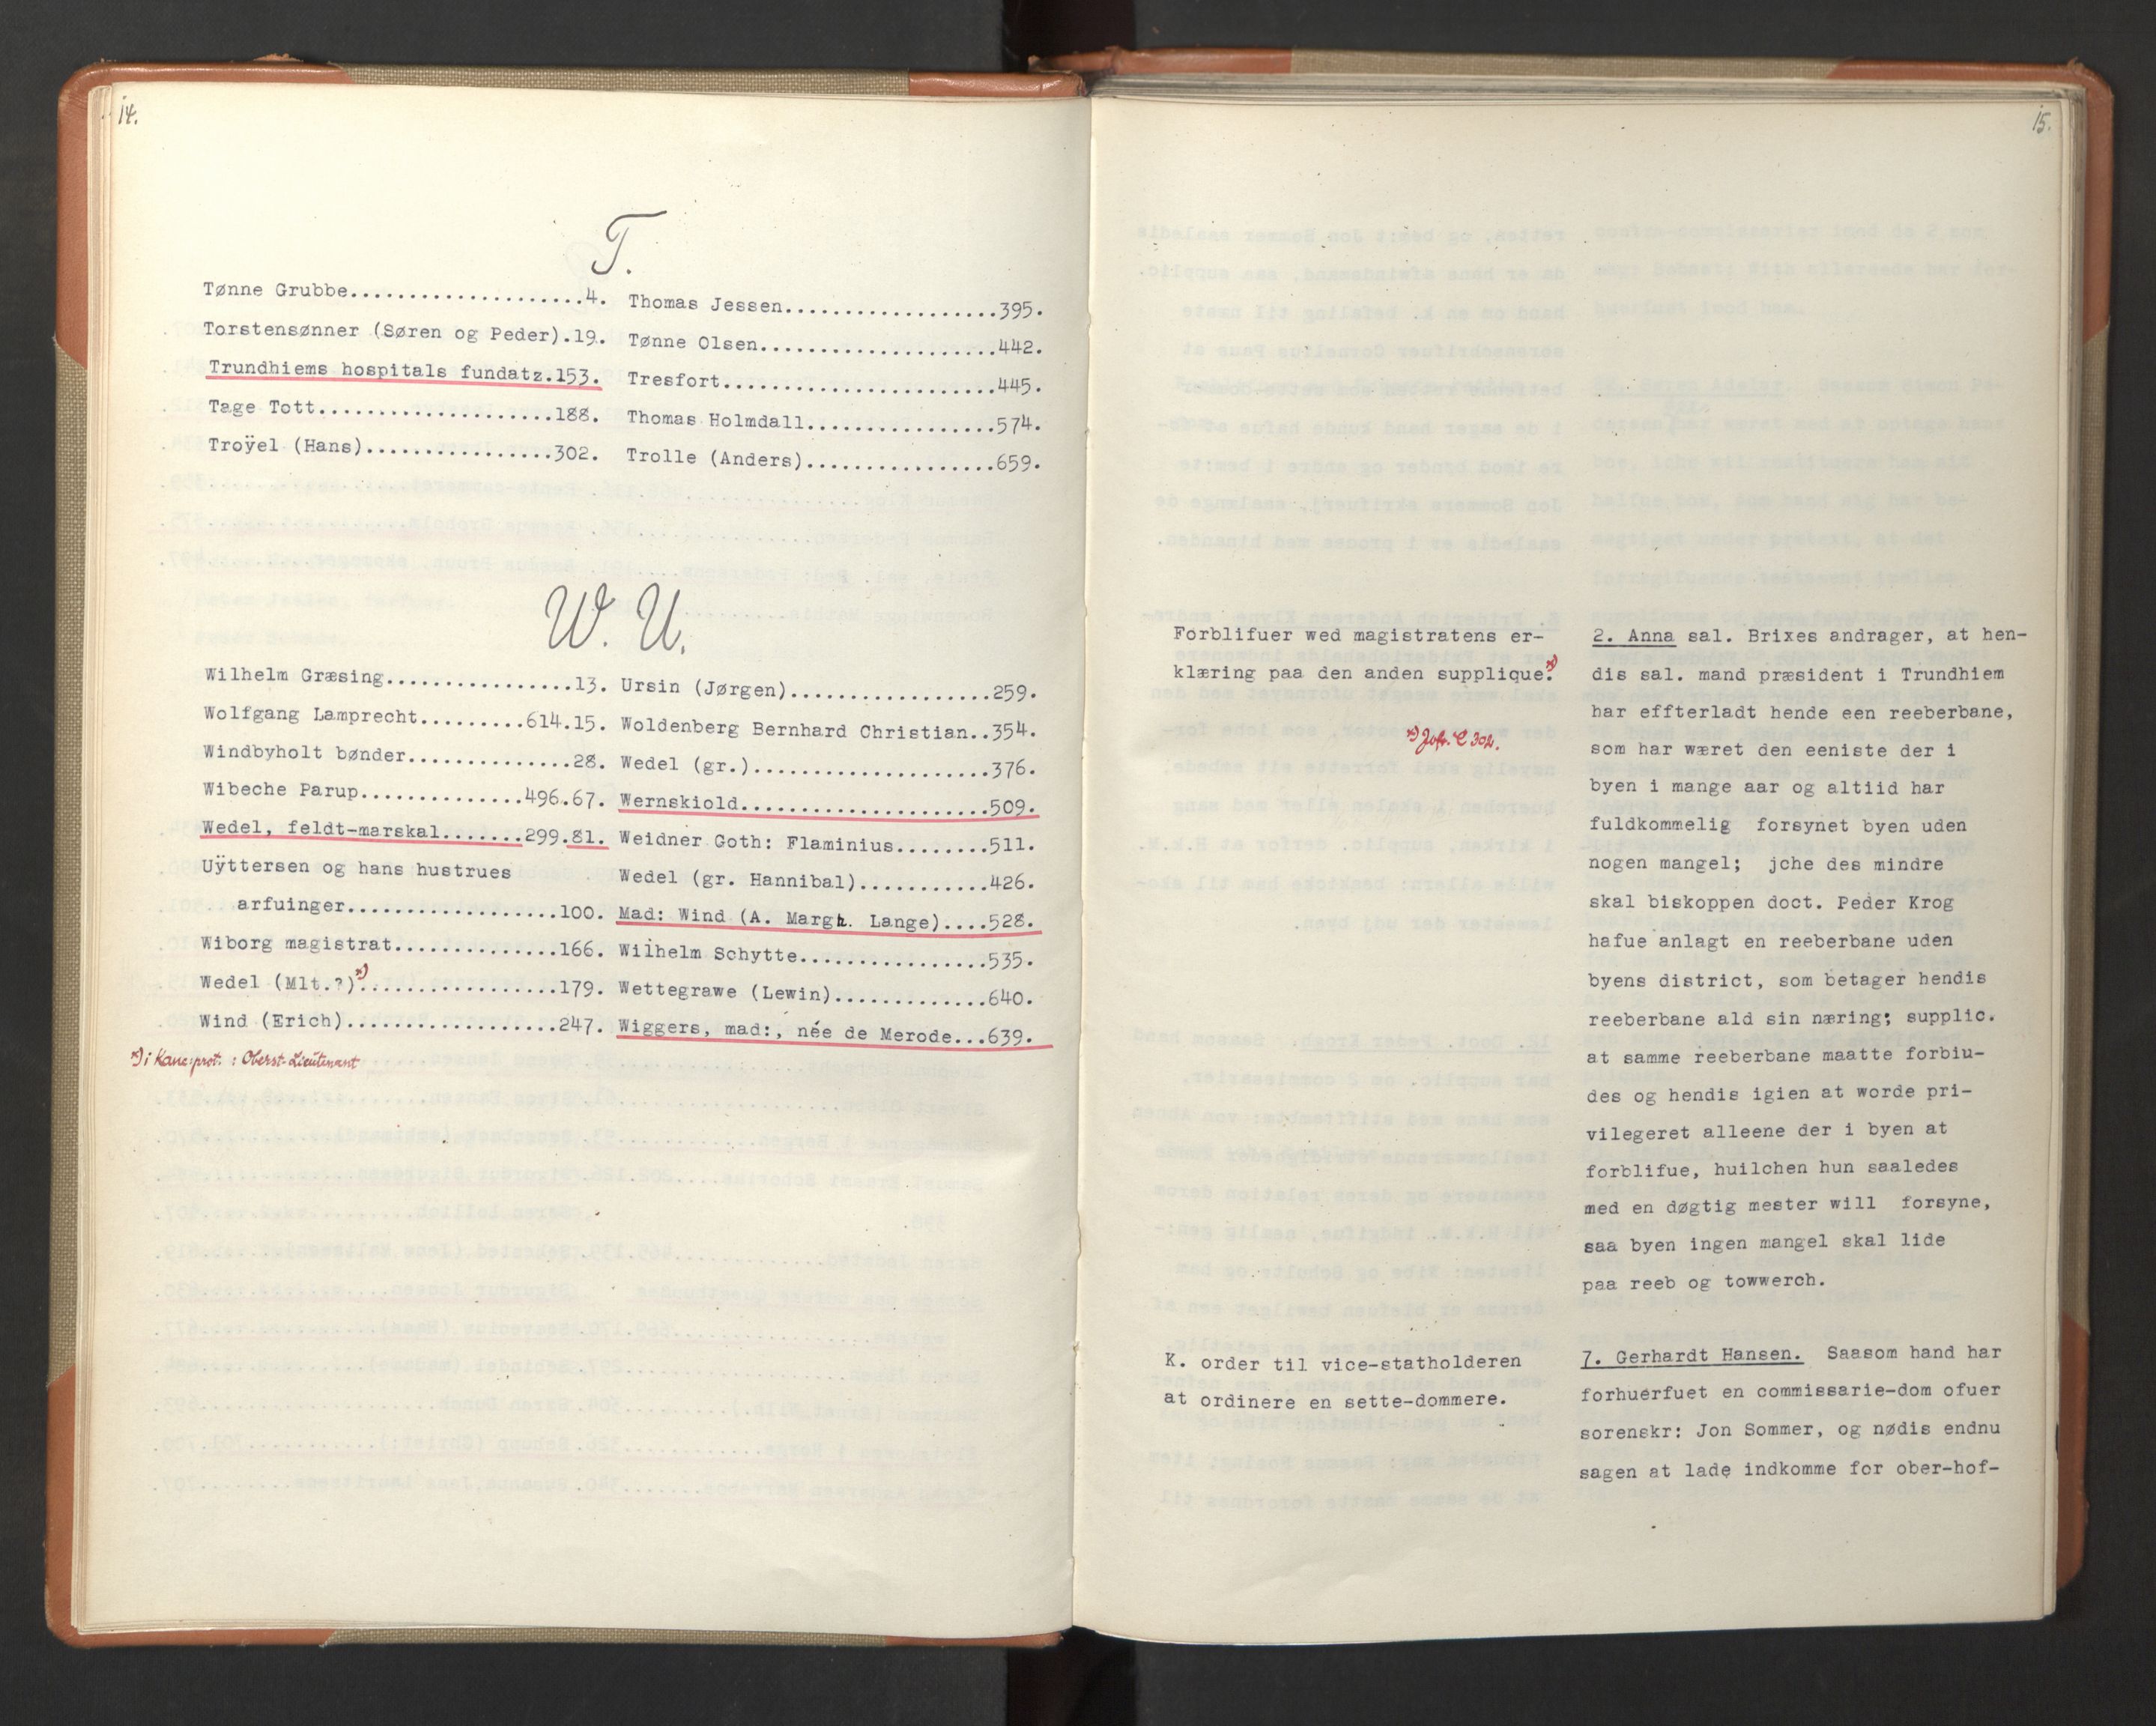 14.
T.
Tønne Grubbe....................4.
Torstensønner (Søren og Peder).19.
Trundhiems hospitals fundatz.153.
Tage Tott....................188.
Troÿel (Hans)................302.
Thomas Jessen..................395.
Tønne Olsen....................442.
Tresfort.......................445.
Thomas Holmdall................574.
Trolle (Anders)................659.
W. U.
Wilhelm Græsing................13.
Wolfgang Lamprecht.........614.15.
Windbyholt bønder..............28.
Wibeche Parup..............496.67.
Wedel, feldt-marskal.......299.81.
Uÿttersen og hans hustrues
arfuinger..................100.
Wiborg magistrat..............166.
Wedel (Mlt.?)*).................179.
Wind (Erich)..................247.
*) i Kanc:prot. : Oberst-Lieutenant
Ursin (Jørgen).................259.
Woldenberg Bernhard Christian..354.
Wedel (gr.)....................376.
Wernskiold.....................509.
Weidner Goth: Flaminius........511.
Wedel (gr. Hannibal)...........426.
Mad: Wind (A. Margh. Lange)....528.
Wilhelm Schytte................535.
Wettegrawe (Lewin).............640.
Wiggers, mad:, née de Merode...639.
15.
Forblifuer wed magistratens er-
klæring paa den anden supplique.*)
*) Jvfr. C 302.
2. Anna sal. Brixes andrager, at hen-
dis sal. mand præsident i Trundhiem
har effterladt hende een reeberbane,
som har wæret den eeniste der i
byen i mange aar og altiid har
fuldkommelig forsynet byen uden
nogen mangel; jche des mindre
skal biskoppen doct. Peder Krog
hafue anlagt en reeberbane uden
byens district, som betager hendis
reeberbane ald sin næring; supplic.
at samme reeberbane maatte forbiu-
des og hendis igien at worde pri-
vilegeret alleene der i byen at
forblifue, huilchen hun saaledes
med en døgtig mester will forsyne,
saa byen ingen mangel skal lide
paa reeb og towwerch.
K. order til vice-statholderen
at ordinere en sette-dommere.
7. Gerhardt Hansen. Saasom hand har
forhuerfuet en commissarie-dom ofuer
sorenskr: Jon Sommer, og nødis endnu
sagen at lade indkomme for ober-hof-